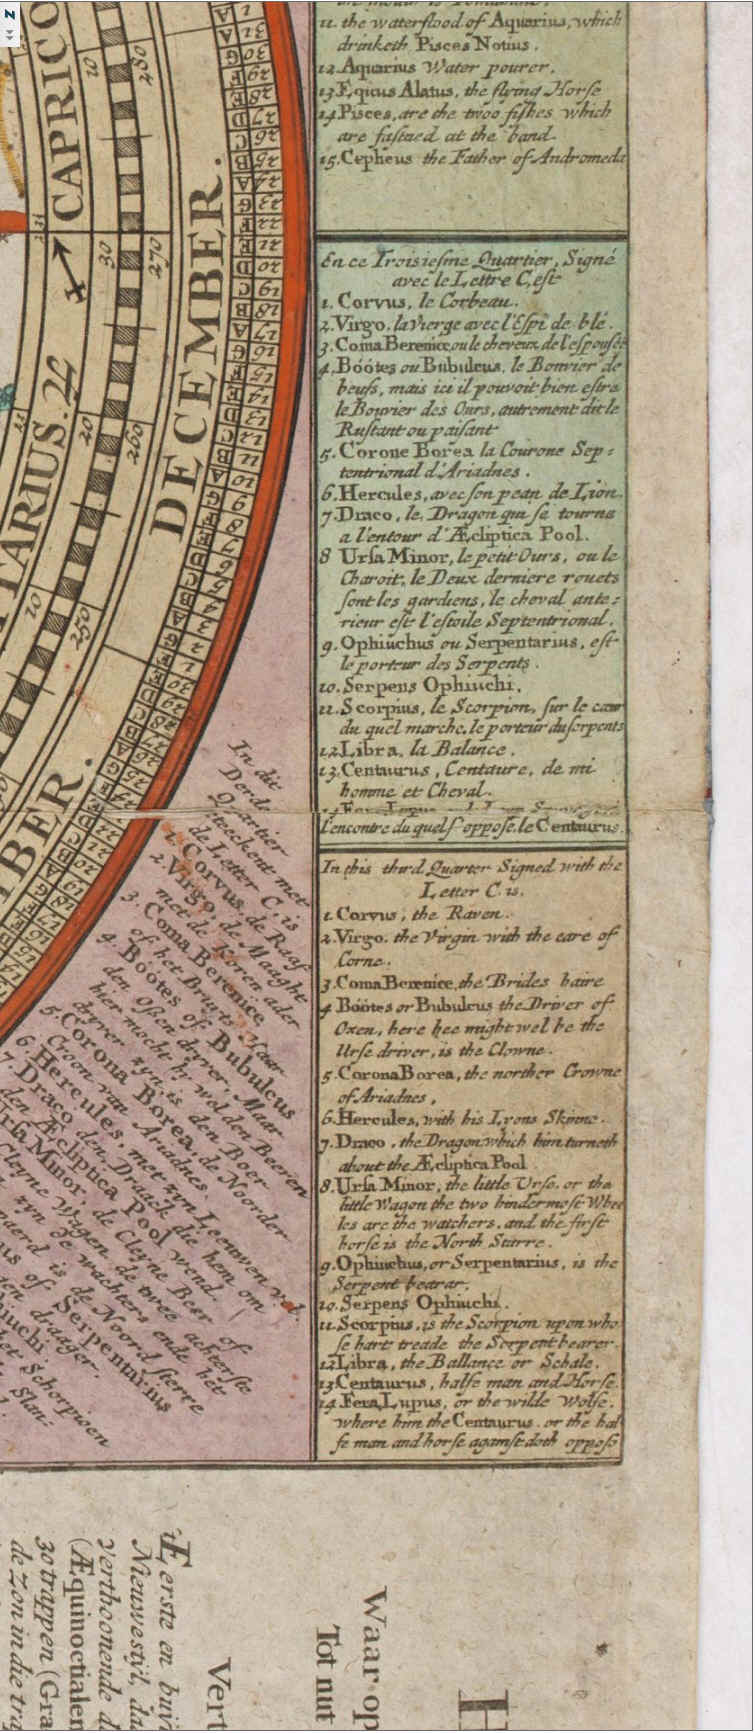 11. the waterflood of Aquarius, which
drinketh Pisces Notius.
12 Aquarius Water pourer.
13 Equus Alatus, the flying Horse
14 Pisces, are the twoo fishes which
are fastned at the band
15. Cepheus the Father of Andromeda
En ce Troisiesme Quartier, Signé
avec le Lettre C, est
1. Corvus, le Corbeau.
2. Virgo. la vierge avec l'Espi de blé.
3. Coma Berenice ou le cheveux de l'espousée
4. Boótes ou Bubulcus, le Bouvier de
beufs, mais ici il pouvoit bien estre
le Bouvier des Ours, autrement dit le
Rustant ou paisant
5. Corone Borea la Courone Sep-
tentrional d'Ariadnes.
6. Hercules, avec son pean de Lion.
7. Draco, le Dragon qui se tourne
a l'entour d'Æcliptica Pool.
8 Ursa Minor, le petit Ours, ou le
Charoit, le Deux derniere rouets
sont les gardiens, le cheval ante-
rieur est l'estoile Septentrional.
9. Ophiuchus ou Serpentarius, est
le porteur des Serpents.
10. Serpens Ophiuchi.
11. Scorpius, le Scorpion, sur le cœur
du quel marche, le porteur du serpents
12. Libra, la Balance.
13. Centaurus, Centaure, de mi
homme et Cheval.
l'encontre du quel s'oppose. le Centaurus.
In this third Quarter Signed with the
Letter C. is.
1. Corvus, the Raven.
2. Virgo. the Virgin with the eare of
Corne.
3. Coma Berenice, the Brides haire
4 Boótes or Bubulcus the Driver of
Oxen, here hee might wel be the
Urse driver, is the Clowne.
5. Corona Borea, the norther Crowne
of Ariadnes,
6. Hercules, with his Lyons Skinne.
7. Draco, the Dragon which him turneth
about the Æcliptica Pool
8. Ursa Minor, the little Urse, or the
little Wagon the two hindermost Whee
les are the watchers, and the first
horse is the North Starre.
9. Ophiuchus, or Serpentarius, is the
Serpent bearar.
10. Serpens Ophiuchi.
11. Scorpius, is the Scorpion upon who
se hart treade the Serpent bearer.
12 Libra, the Ballance or Schale.
13 Centaurus, halfe man and Horse.
14. Fera, Lupus, or the wilde Wolfe.
where him the Centaurus. or the hal
fe man and horse against doth oppose
CAPRICO
TARIUS.
DECEMBER.
BER.
In dit
Derde
Quartier
Geteeckent met
de Letter C. is
1. Corvus, de Raaf
2. Virgo, de Maaght
met de Koren ader
3. Coma Berenice,
of het Bruits Haar
4. Boótes of Bubulcus
den Ossen dryver, Maar
hier mocht hy wel den Beeren
dryver zyn, is den Boer
5. Corona Borea, de Noorder
Croon van Ariadnes.
6. Hercules, met zyn Leeuwen vel
7. Draco den Draack die hem om
den Æcliptica Pool wend.
Ursa Minor, de Cleyne Beer of
Cleyne Wagen de twee achterste
zyn de wachters ende het
paerd is de Noord sterre
us of Serpentarius
ten draager
hiuchi
het Schorpioen
Slan-
Eerste en buy
Nieuwestijl, da
Verthoonende d
(Æquinoctialen
30 trappen (Gra
de Zon in die tra
Vert
Waar op
Tot nut
H